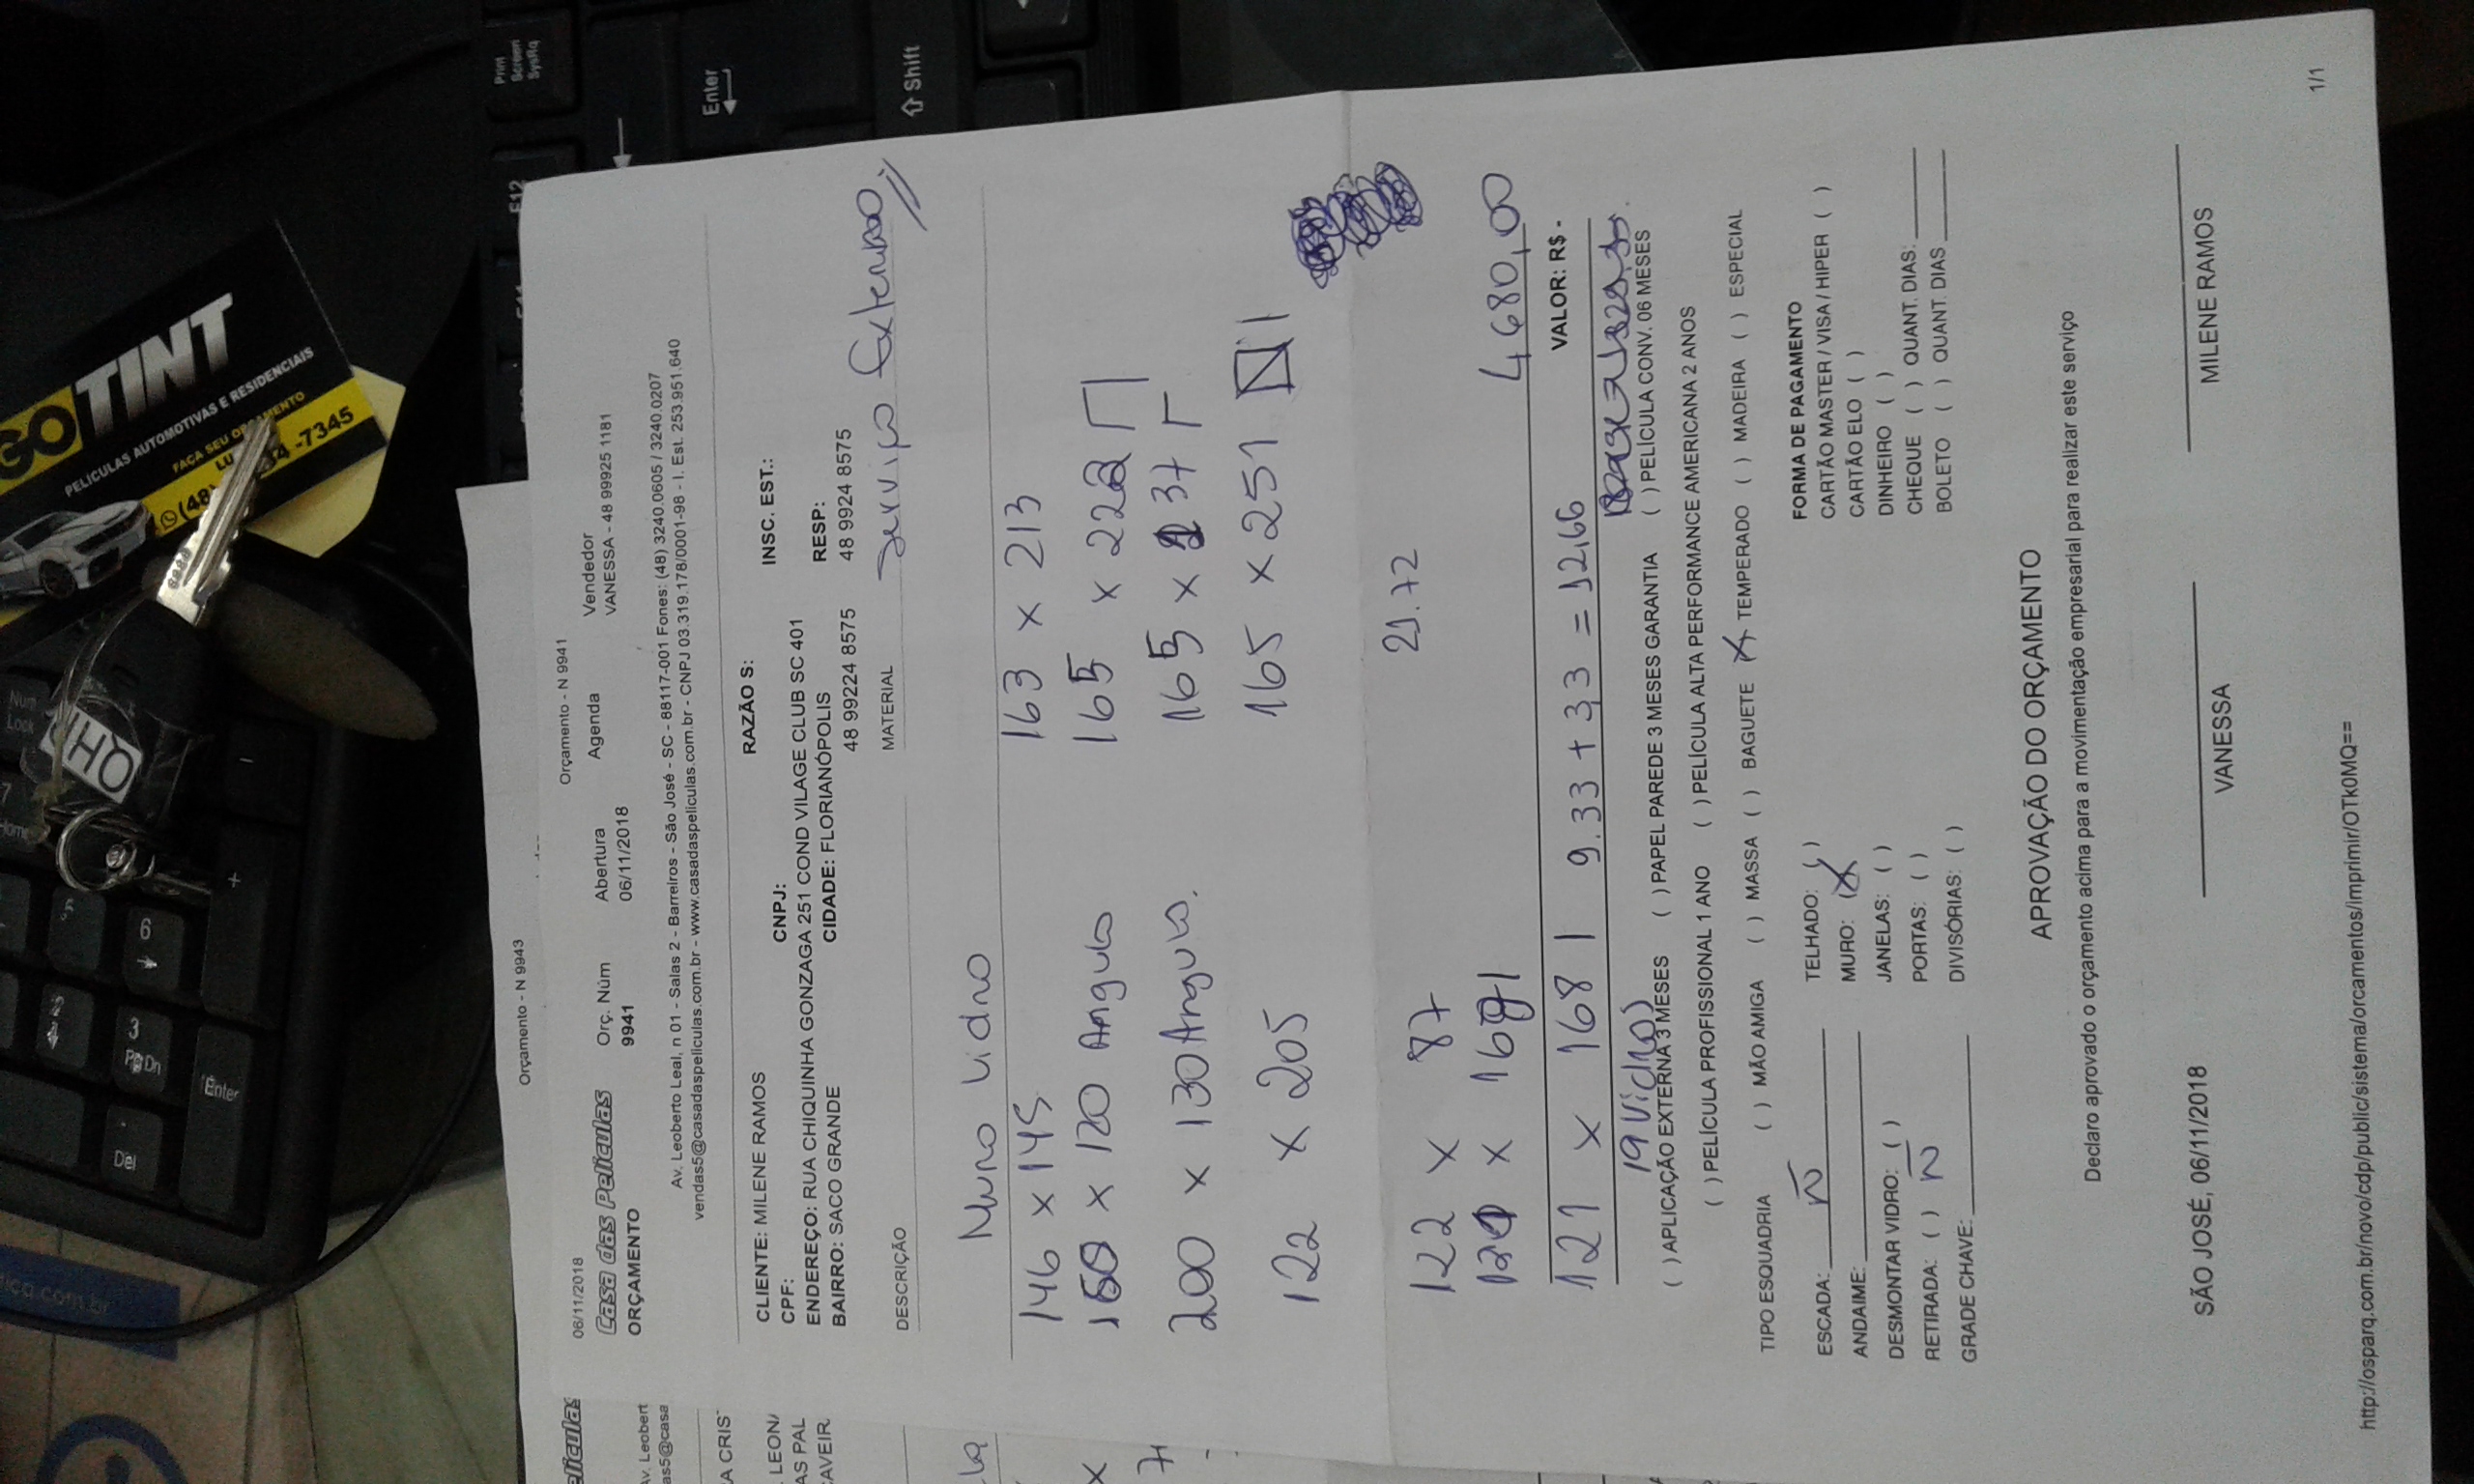 06/11/2018
Orçamento - N 9941
Casa das Películas
ORÇAMENTO
Orç. Núm
9941
Abertura
06/11/2018
Agenda
Vendedor
VANESSA - 48 99925 1181
Av. Leoberto Leal, n 01 - Salas 2 - Barreiros - São José - SC - 88117-001 Fones: (48) 3240.0605 / 3240.0207
vendas5@casadaspeliculas.com.br - www.casadaspeliculas.com.br - CNPJ 03.319.178/0001-98 - I. Est. 253.951.640
CLIENTE: MILENE RAMOS
RAZÃO S:
CPF:
CNPJ:
INSC. EST.:
ENDEREÇO: RUA CHIQUINHA GONZAGA 251 COND VILAGE CLUB SC 401
RESP:
BAIRRO: SACO GRANDE
CIDADE: FLORIANÓPOLIS
48 99224 8575
48 9924 8575
48 9924 8575
DESCRIÇÃO
MATERIAL
Serviço Externo
Muro Vidro
146 x 145
163 x 213
x 120 Angulo
165 x 222
200 x 130 Angulo.
165 x 237
122 x 205
165 x 251
122 x 87
21.72
4.680,00
121 x 168
9.33 + 3,3 = 12.66
VALOR: R$ -
19 Vidros
( ) APLICAÇÃO EXTERNA 3 MESES ( ) PAPEL PAREDE 3 MESES GARANTIA ( ) PELÍCULA CONV. 06 MESES
( ) PELÍCULA PROFISSIONAL 1 ANO ( ) PELÍCULA ALTA PERFORMANCE AMERICANA 2 ANOS
TIPO ESQUADRIA ( ) MÃO AMIGA ( ) MASSA ( ) BAGUETE (X) TEMPERADO ( ) MADEIRA ( ) ESPECIAL
ESCADA: Ñ
TELHADO: ( )
FORMA DE PAGAMENTO
ANDAIME:
MURO: (X)
CARTÃO MASTER / VISA / HIPER ( )
DESMONTAR VIDRO: ( )
JANELAS: ( )
CARTÃO ELO ( )
RETIRADA: ( ) Ñ
PORTAS: ( )
DINHEIRO ( )
GRADE CHAVE:
DIVISÓRIAS: ( )
CHEQUE ( ) QUANT. DIAS:
BOLETO ( ) QUANT. DIAS
APROVAÇÃO DO ORÇAMENTO
Declaro aprovado o orçamento acima para a movimentação empresarial para realizar este serviço
SÃO JOSÉ, 06/11/2018
VANESSA
MILENE RAMOS
http://osparq.com.br/novo/cdp/public/sistema/orcamentos/imprimir/OTk0MQ==
1/1
Orçamento - N 9943
GOTINT
PELÍCULAS AUTOMOTIVAS E RESIDENCIAIS
-7345
Print Screen SysRq
Enter
Shift
F12
Num Lock
7 Home
6
3 PgDn
Del
Enter